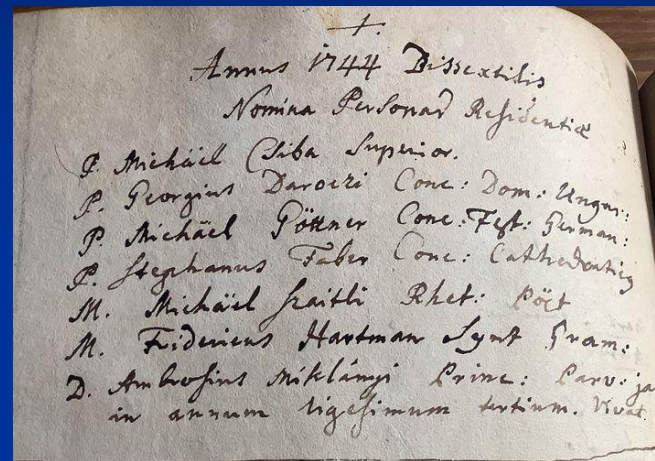 Annus 1744 Bissextilis
Nomina Personar Residentiæ
P. Michaël Csiba Superior.
P. Georgius Daroczi Conc: Dom: Ungar:
P. Michaël Göttner Conc: Fest: German:
P. Stephanus Faber Conc: Cathedraticus
M. Michaël Szaitli Rhet: Pöet
M. Fridericus Hartman Synt Gram:
D. Ambrosius Miklányi Princ: Parv: ja
in annum vigesimum tertium. Vivat.